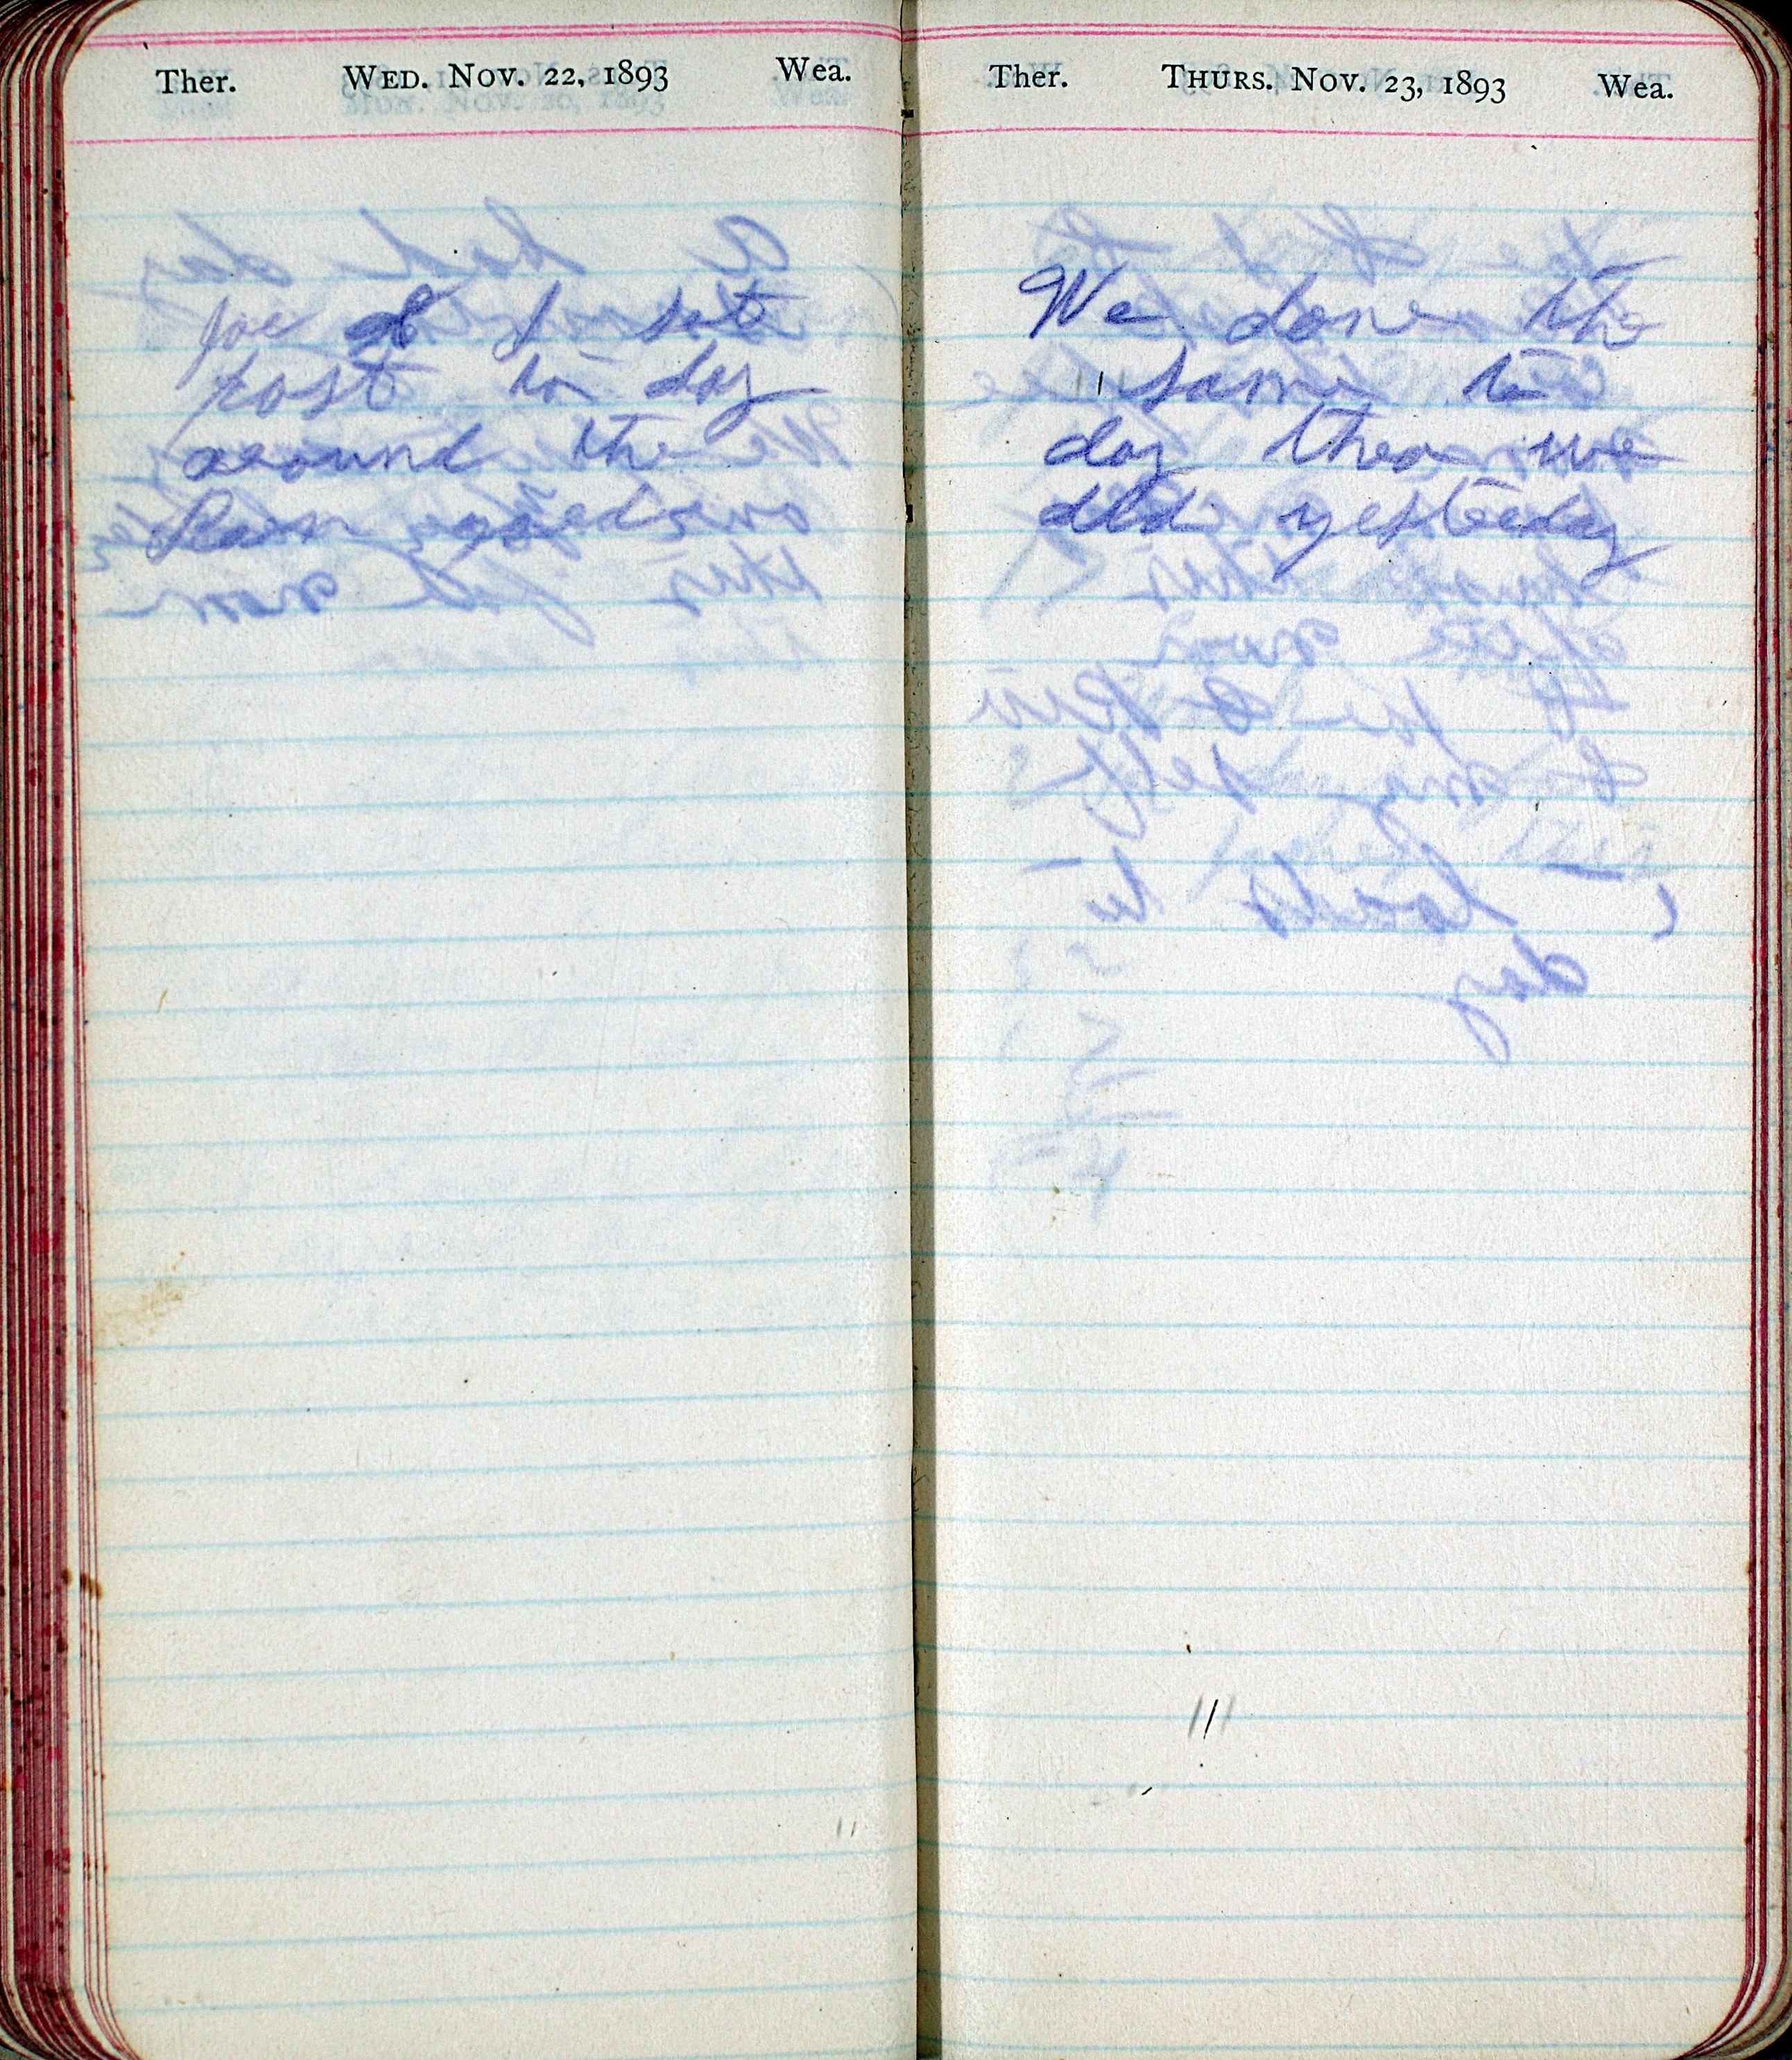 Ther. WED. NOV. 22, 1893 Wea.
joe & I set
post to day
around the
Barn yard
Ther. THURS. NOV. 23, 1893 Wea.
We done the
same to
day that we
did yesterday